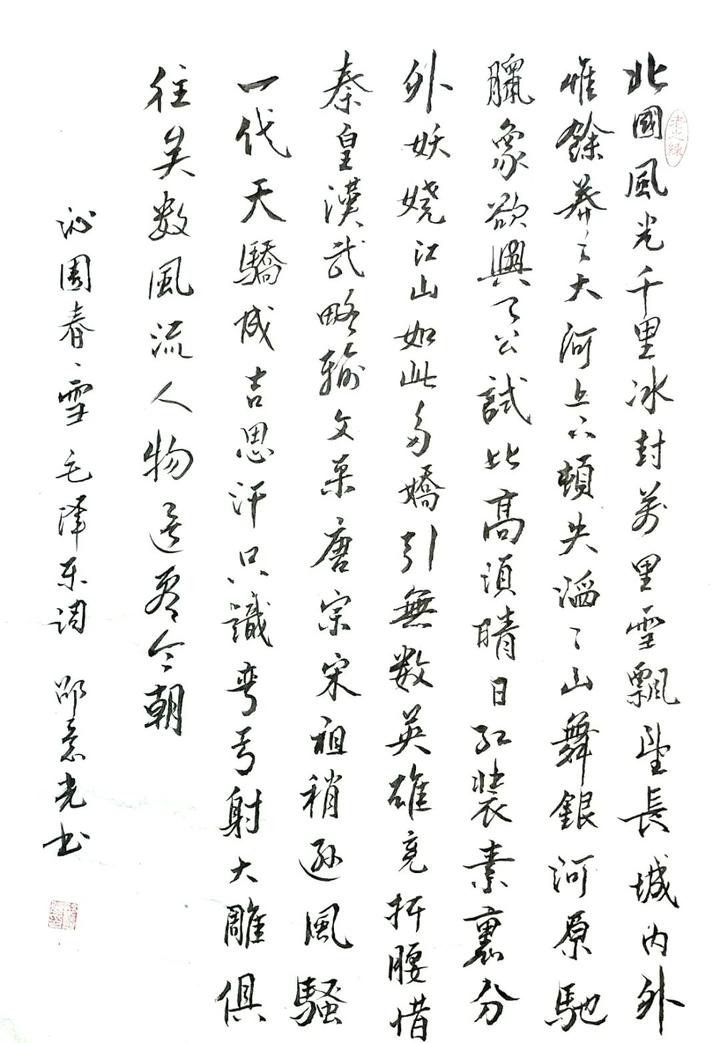 北國風光千里冰封萬里雪飄望長城内外
惟餘莽〻大河上下頓失滔〻山舞銀河原馳
臘象欲與天公試比高須晴日紅裝素裹分
外妖嬈江山如此多嬌引無数英雄竞折腰惜
秦皇漢武略輸文采唐宗宋祖稍遜風騷
一代天驕成吉思汗只識彎弓射大雕俱
往矣数風流人物還看今朝
沁園春、雪 毛泽东词 邵意光书